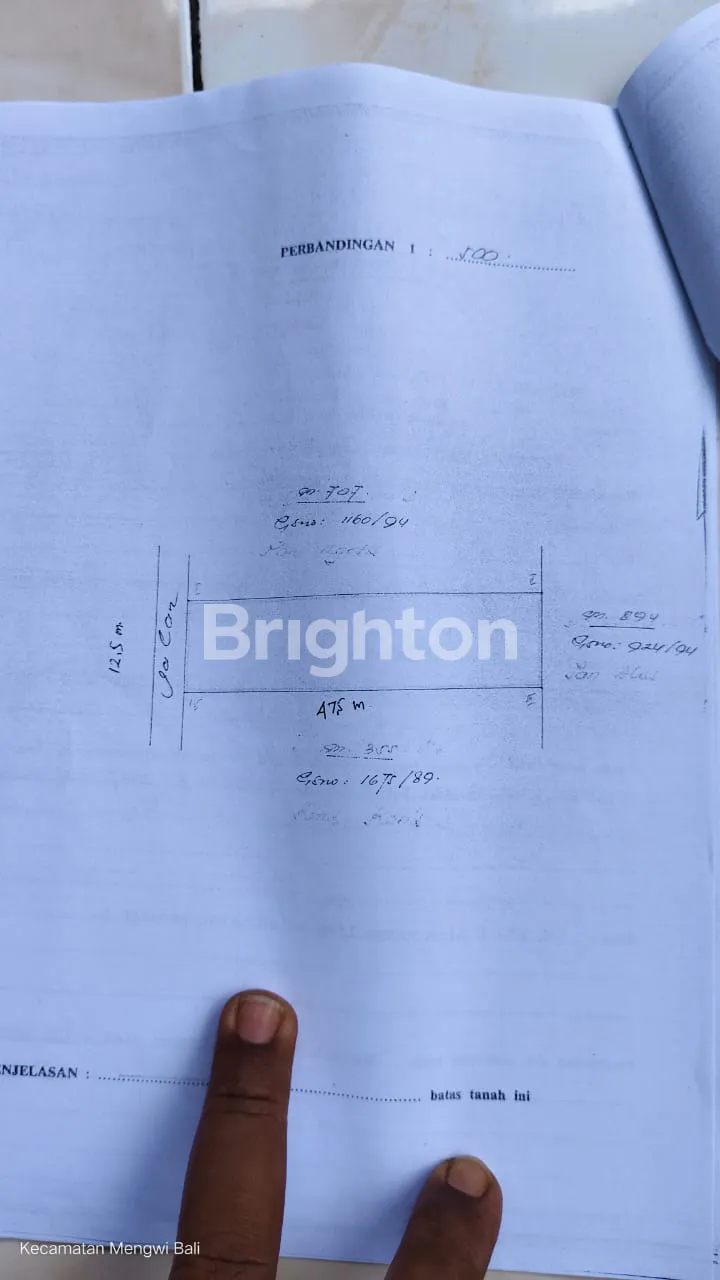 PERBANDINGAN 1 : 500.
m. 707.
G,sno: 1160/94
I
I
Jalan
12,5 m.
Brighton
m. 894
G,sno: 924/94
IV
47,5 m
m. 355
G,sno: 1675/89.
ENJELASAN :
batas tanah ini
Kecamatan Mengwi Bali